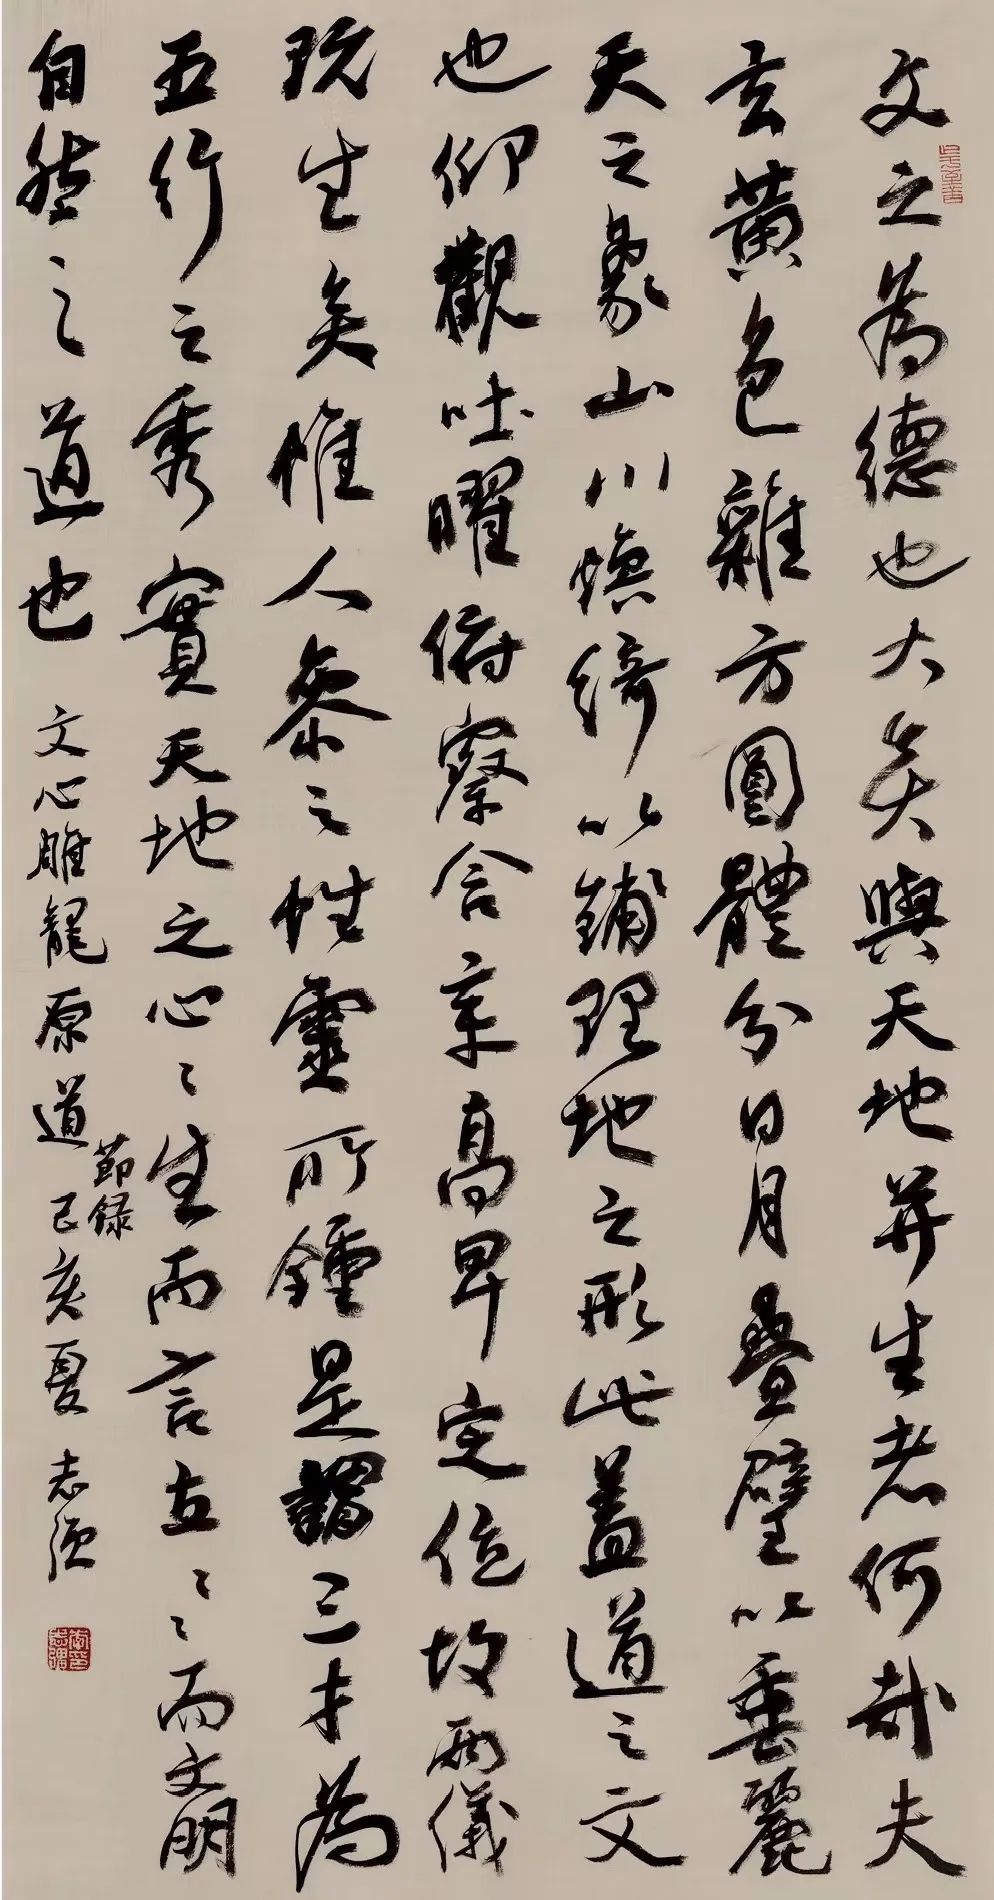 文之為德也大矣與天地并生者何哉夫
玄黃色雜方圓體分日月疊璧以垂麗
天之象山川煥綺以鋪理地之形此蓋道之文
也仰觀吐曜俯察含章高卑定位故兩儀
既生矣惟人參之性靈所鍾是謂三才為
五行之秀實天地之心〻生而言立〻〻而文明
自然之道也
文心雕龍原道
節錄
己亥夏 志強